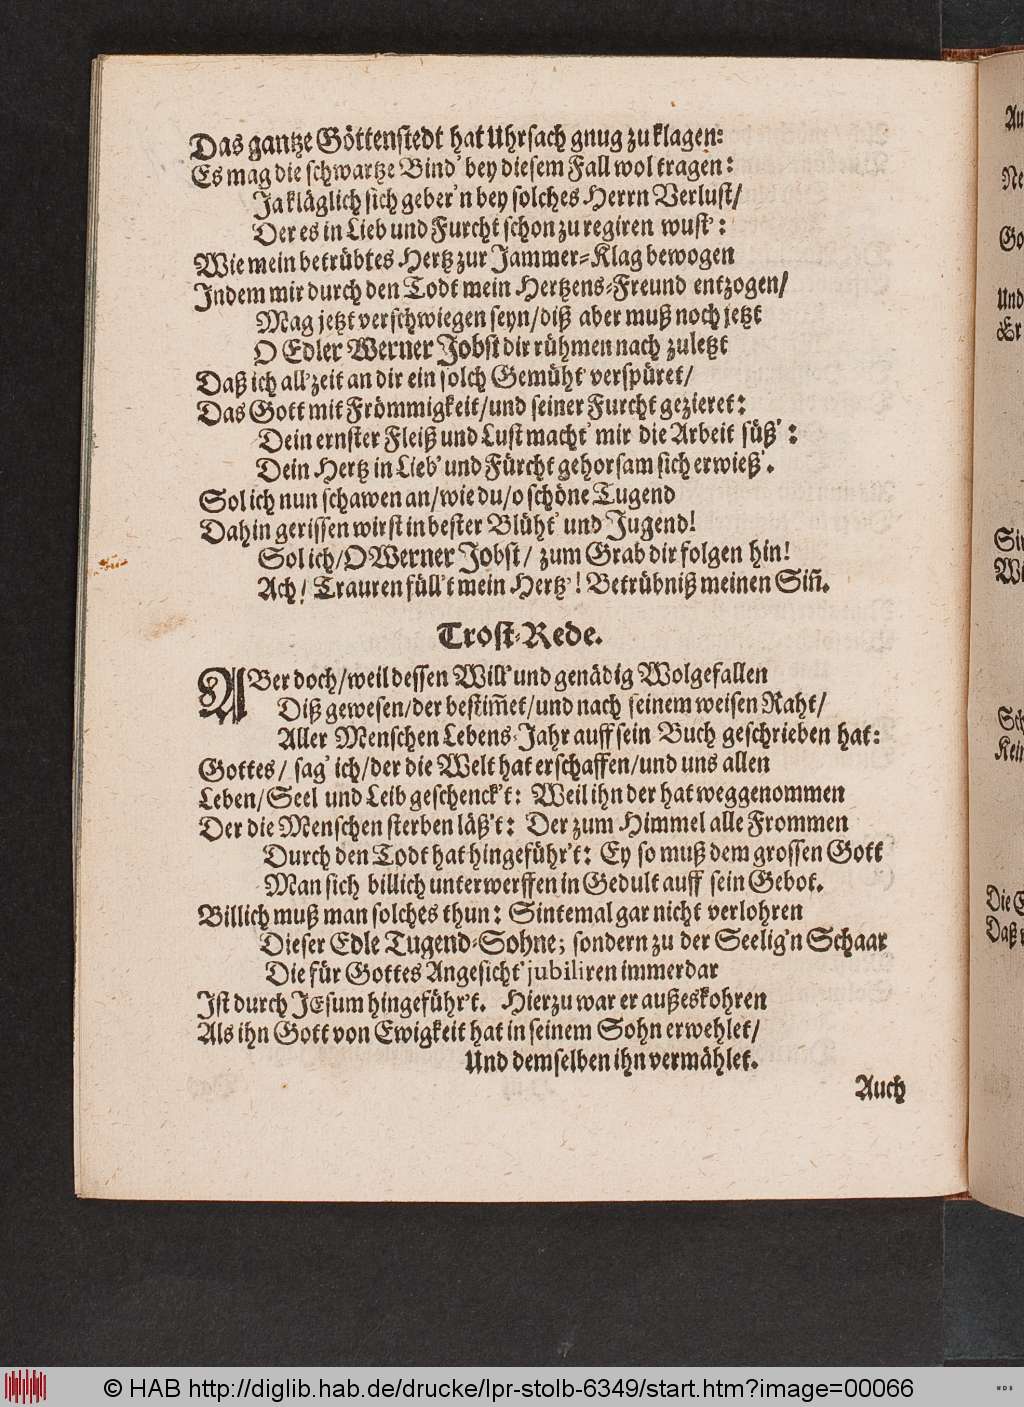 Das gantze Göttenstedt hat Uhrsach gnug zu klagen:
Es mag die schwartze Bind' bey diesem Fall wol tragen:
Ja kläglich sich geber'n bey solches Herrn Verlust/
Der es in Lieb und Furcht schon zu regiren wust':
Wie mein betrübtes Hertz zur Jammer-Klag bewogen
Indem mir durch den Todt mein Hertzens-Freund entzogen/
Mag jetzt verschwiegen seyn/diß aber muß noch jetzt
O Edler Werner Jobst dir rühmen nach zuletzt
Daß ich all'zeit an dir ein solch Gemüht' verspüret/
Das Gott mit Frömmigkeit/und seiner Furcht gezieret:
Dein ernster Fleiß und Lust macht' mir die Arbeit süß':
Dein Hertz in Lieb' und Fürcht gehorsam sich erwieß'.
Sol ich nun schawen an/wie du/o schöne Tugend
Dahin gerissen wirst in bester Blüht' und Jugend!
Sol ich/O Werner Jobst/ zum Grab dir folgen hin!
Ach/ Trauren füll't mein Hertz'! Betrübniß meinen Siñ.
Trost-Rede.
ABer doch/weil dessen Will' und genädig Wolgefallen
Diß gewesen/der bestim̃et/und nach seinem weisen Raht/
Aller Menschen Lebens-Jahr auff sein Buch geschrieben hat:
Gottes/ sag' ich/der die Welt hat erschaffen/und uns allen
Leben/Seel und Leib geschenck't: Weil ihn der hat weggenommen
Der die Menschen sterben läß't: Der zum Himmel alle Frommen
Durch den Todt hat hingeführ't: Ey so muß dem grossen Gott
Man sich billich unterwerffen in Gedult auff sein Gebot.
Billich muß man solches thun: Sintemal gar nicht verlohren
Dieser Edle Tugend-Sohne; sondern zu der Seelig'n Schaar
Die für Gottes Angesicht' jubiliren immerdar
Ist durch JEsum hingeführ't. Hierzu war er außeskohren
Als ihn Gott von Ewigkeit hat in seinem Sohn erwehlet/
Und demselben ihn vermählet.
Auch
Au
Ne
Go
Und
Er
Sin
Wi
Sch
Kein
Die E
Daß
© HAB http://diglib.hab.de/drucke/lpr-stolb-6349/start.htm?image=00066